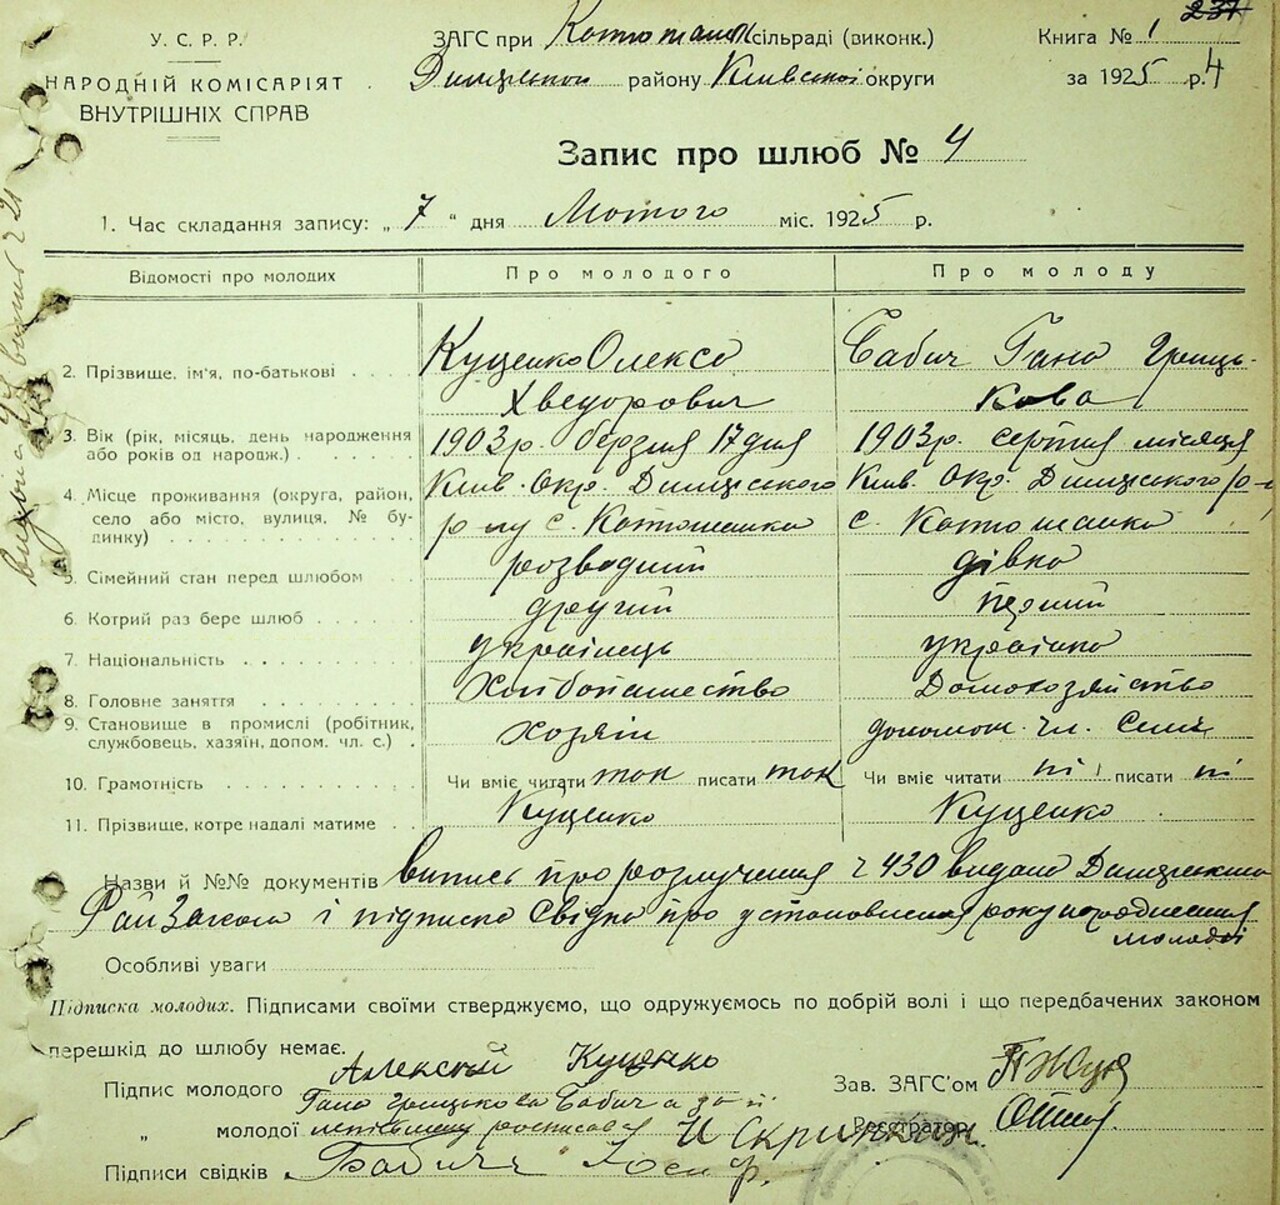 237
У. С. Р. Р.
НАРОДНІЙ КОМІСАРІЯТ
ВНУТРІШНІХ СПРАВ
ЗАГС при Котошанск сільраді (виконк.)
району Київської округи
Книга № 1
за 1925 р. 4
Запис про шлюб № 4
1. Час складання запису: „ 7 “ дня Лютого міс. 1925 р.
Відомості про молодих Про молодого Про молоду
2. Прізвище, ім'я, по-батькові Куценко Олекса Хведорович Бабич Гана Грицькова
3. Вік (рік, місяць, день народження або років од народж.) 1903 р. берзня 17 дня 1903 р. серпня місяця
4. Місце проживання (округа, район, село або місто, вулиця, № будинку) Київ. Окр. Димерського р-ну с. Котюшанка Київ. Окр. Димерського р- с. Котюшанка
5. Сімейний стан перед шлюбом розводний дівка
6. Котрий раз бере шлюб другий перший
7. Національність українець українка
8. Головне заняття Хлібопашество Домохозяйство
9. Становище в промислі (робітник, службовець, хазяїн, допом. чл. с.) хозяїн допомож. чл. Семї
10. Грамотність Чи вміє читати так писати так Чи вміє читати ні писати ні
11. Прізвище, котре надалі матиме Куценко Куценко
Назви й №№ документів випись про розлучення ч 430 видана Димерським
РайЗагсом і підписка Свідка про установлення року народження
молодої
Особливі уваги
Підписка молодих. Підписами своїми стверджуємо, що одружуємось по добрій волі і що передбачених законом
перешкід до шлюбу немає.
Підпис молодого Алексей Куценко
Зав. ЗАГС'ом
Гана Грицькова Бабич а за її
„ молодої неписьмену росписався И Скрипкин
Реєстратор
Підписи свідків Бабич